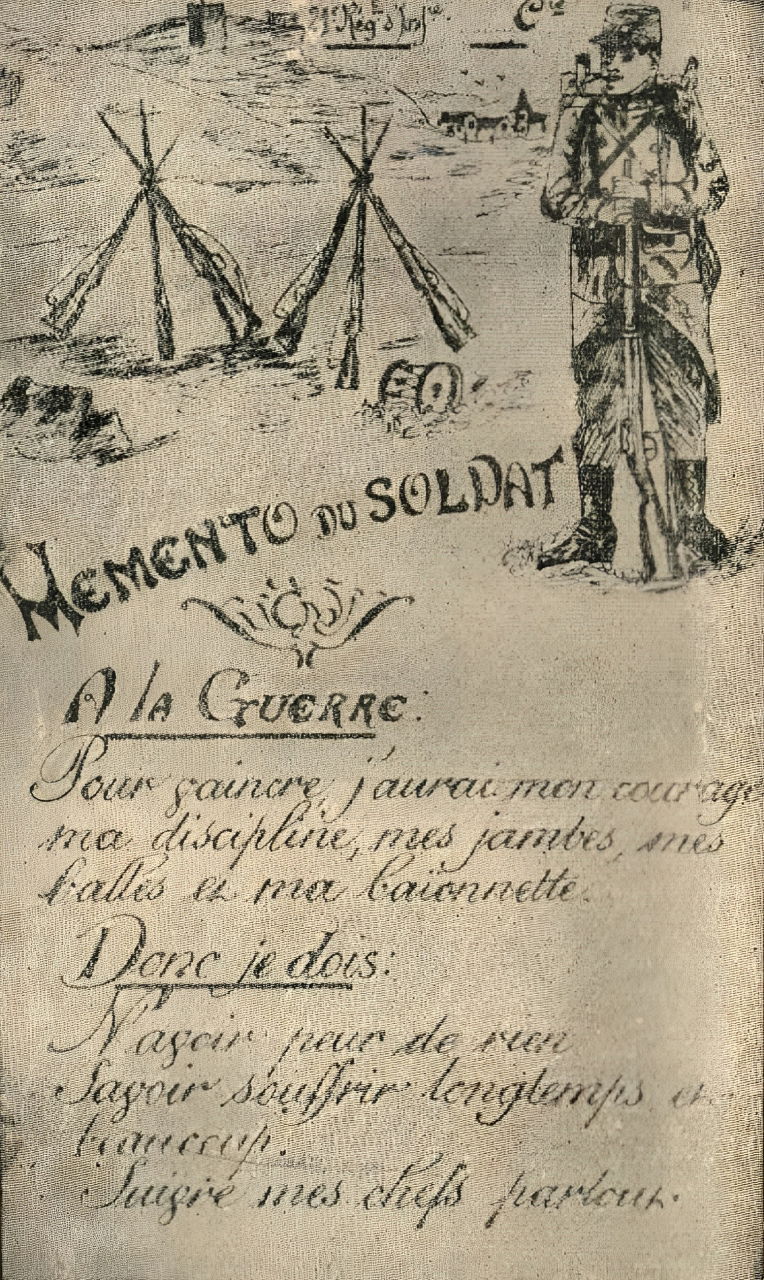 21e Régt d'Infie. Cie
MEMENTO DU SOLDAT
A la GUERRE:
Pour vaincre, j'aurai mon courage
ma discipline, mes jambes, mes
balles et ma baïonnette.
Donc je dois:
N'avoir peur de rien
Savoir souffrir longtemps et
beaucoup.
Suivre mes chefs partout.